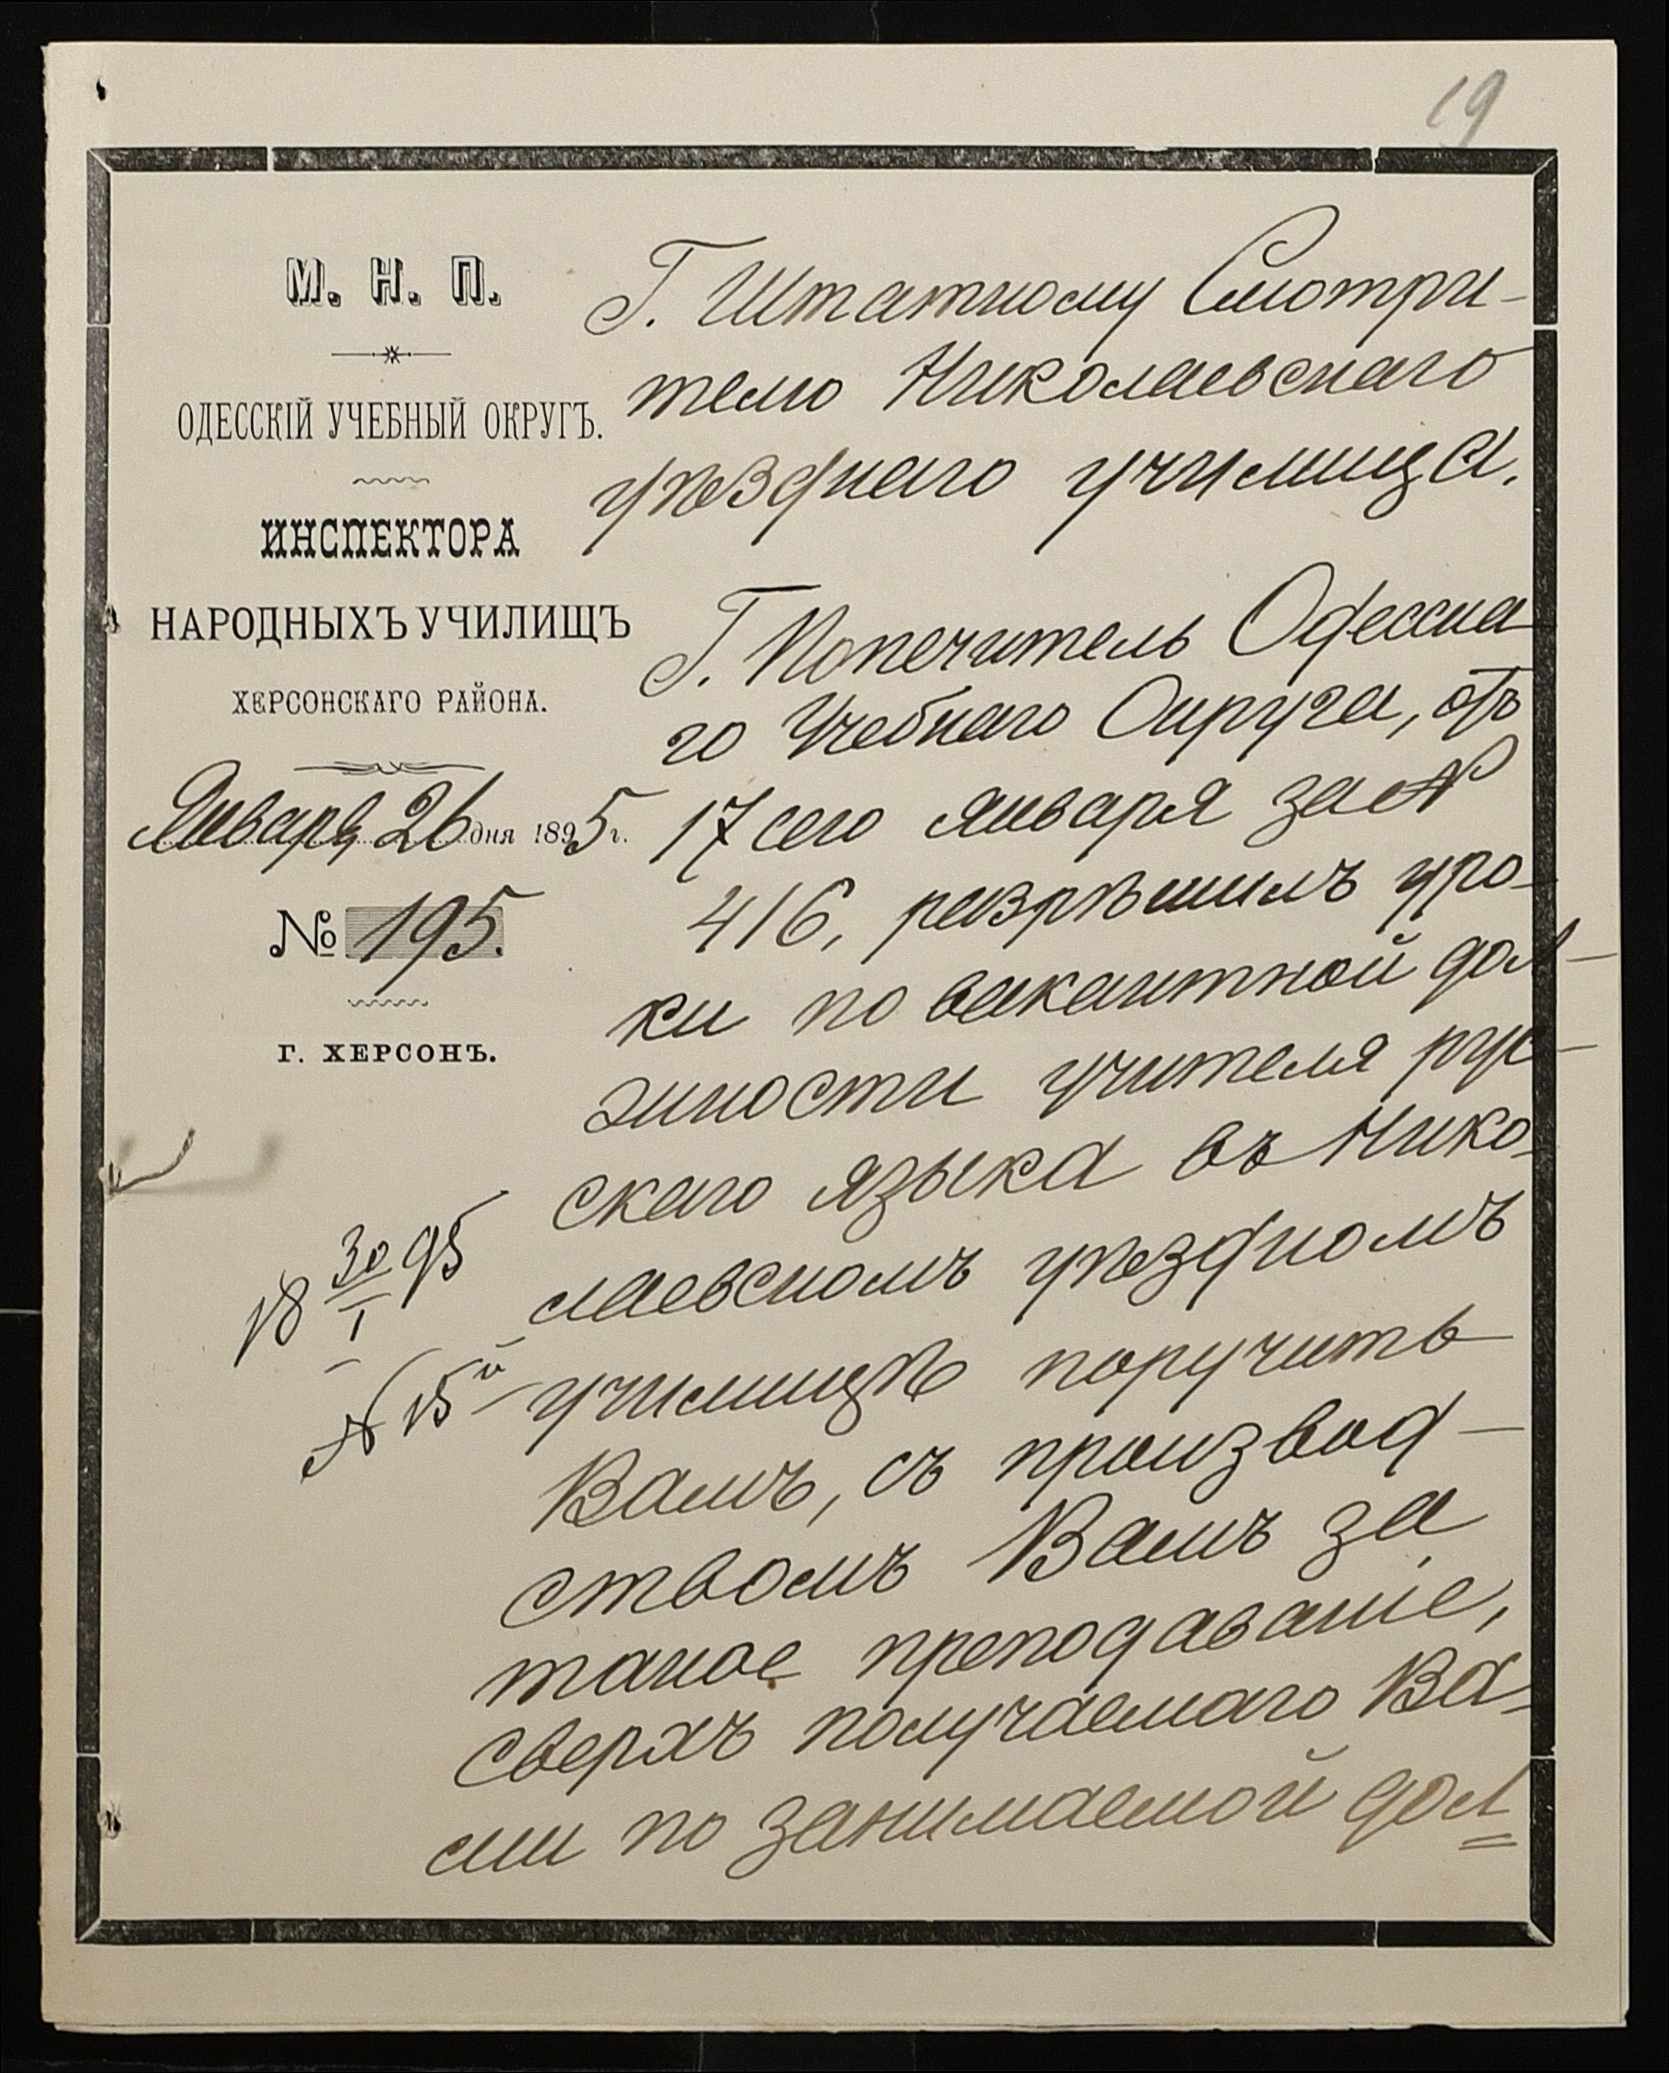 19
М. Н. П.
ОДЕССКІЙ УЧЕБНЫЙ ОКРУГЪ.
ИНСПЕКТОРА
НАРОДНЫХЪ УЧИЛИЩЪ
ХЕРСОНСКАГО РАЙОНА.
Января 26 дня 1895 г.
№ 195.
Г. ХЕРСОНЪ.
18 30/I 95
№ 15й
Г. Штатному Смотри-
телю Николаевскаго
уѣзднаго училища.
Г. Попечитель Одесска
го Учебнаго Округа, отъ
17 сего января за №
416, разрѣшилъ уро-
ки по вакантной дол-
жности учителя рус-
скаго языка въ Нико-
лаевскомъ уѣздномъ
училищѣ поручить
Вамъ, съ производ-
ствомъ Вамъ за
такое преподаваніе,
сверхъ получаемаго Ва-
ми по занимаемой дол=